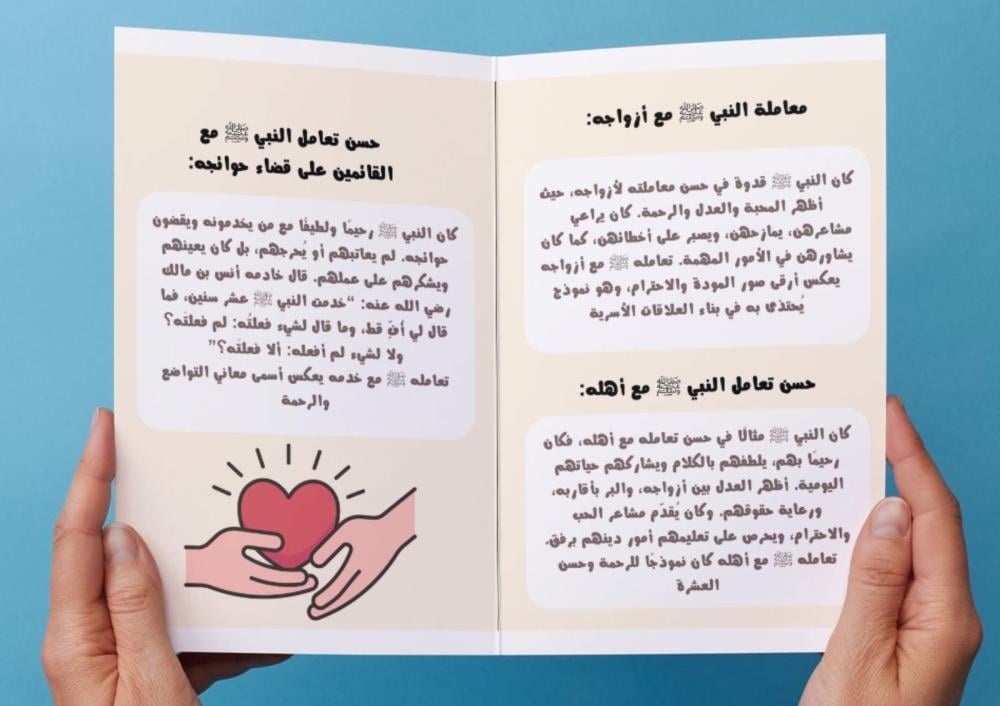 معاملة النبي ﷺ مع أزواجه:
كان النبي ﷺ قدوة في حسن معاملته لأزواجه، حيث
أظهر المحبة والعدل والرحمة. كان يراعي
مشاعرهن، يمازحهن، ويصبر على أخطائهن، كما كان
يشاورهن في الأمور المهمة. تعامله ﷺ مع أزواجه
يعكس أرقى صور المودة والاحترام، وهو نموذج
يُحتذى به في بناء العلاقات الأسرية
حسن تعامل النبي ﷺ مع أهله:
كان النبي ﷺ مثالًا في حسن تعامله مع أهله، فكان
رحيمًا بهم، يلطفهم بالكلام ويشاركهم حياتهم
اليومية. أظهر العدل بين أزواجه، والبر بأقاربه،
ورعاية حقوقهم. وكان يُقدّم مشاعر الحب
والاحترام، ويحرص على تعليمهم أمور دينهم برفق.
تعامله ﷺ مع أهله كان نموذجًا للرحمة وحسن
العشرة
حسن تعامل النبي ﷺ مع
القائمين على قضاء حوائجه:
كان النبي ﷺ رحيمًا ولطيفًا مع من يخدمونه ويقضون
حوائجه. لم يعاتبهم أو يُحرجهم، بل كان يعينهم
ويشكرهم على عملهم. قال خادمه أنس بن مالك
رضي الله عنه: "خدمت النبي ﷺ عشر سنين، فما
قال لي أُفٍّ قط، وما قال لشيء فعلتُه: لم فعلتَه؟
ولا لشيء لم أفعله: ألا فعلتَه؟"
تعامله ﷺ مع خدمه يعكس أسمى معاني التواضع
والرحمة